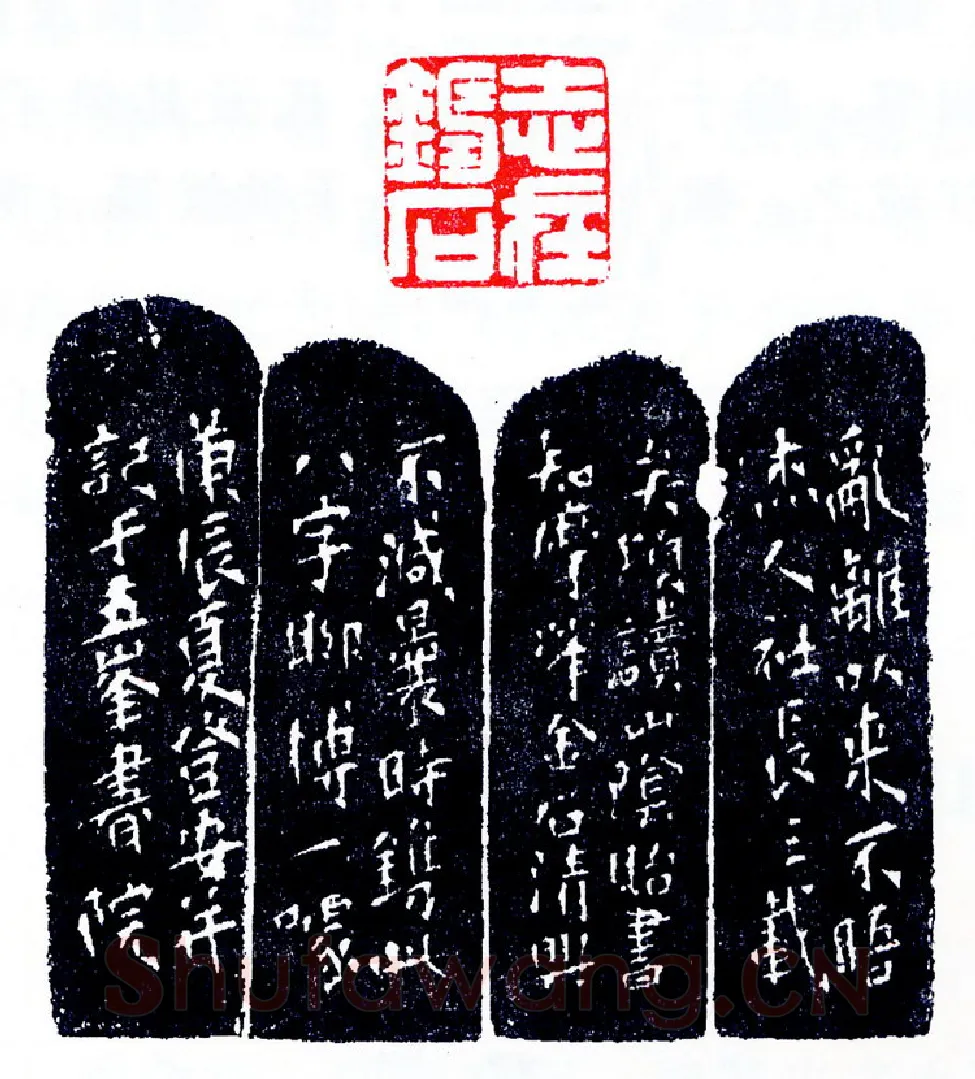 志在
鐫石
亂離以来不晤
杰人社長三載
矣頃讀山陰貽書
知摩挲金石清興
不減曩時鐫此
八字聊博一噱
庚辰夏登安并
記于五峯書院
Shufawang.CN